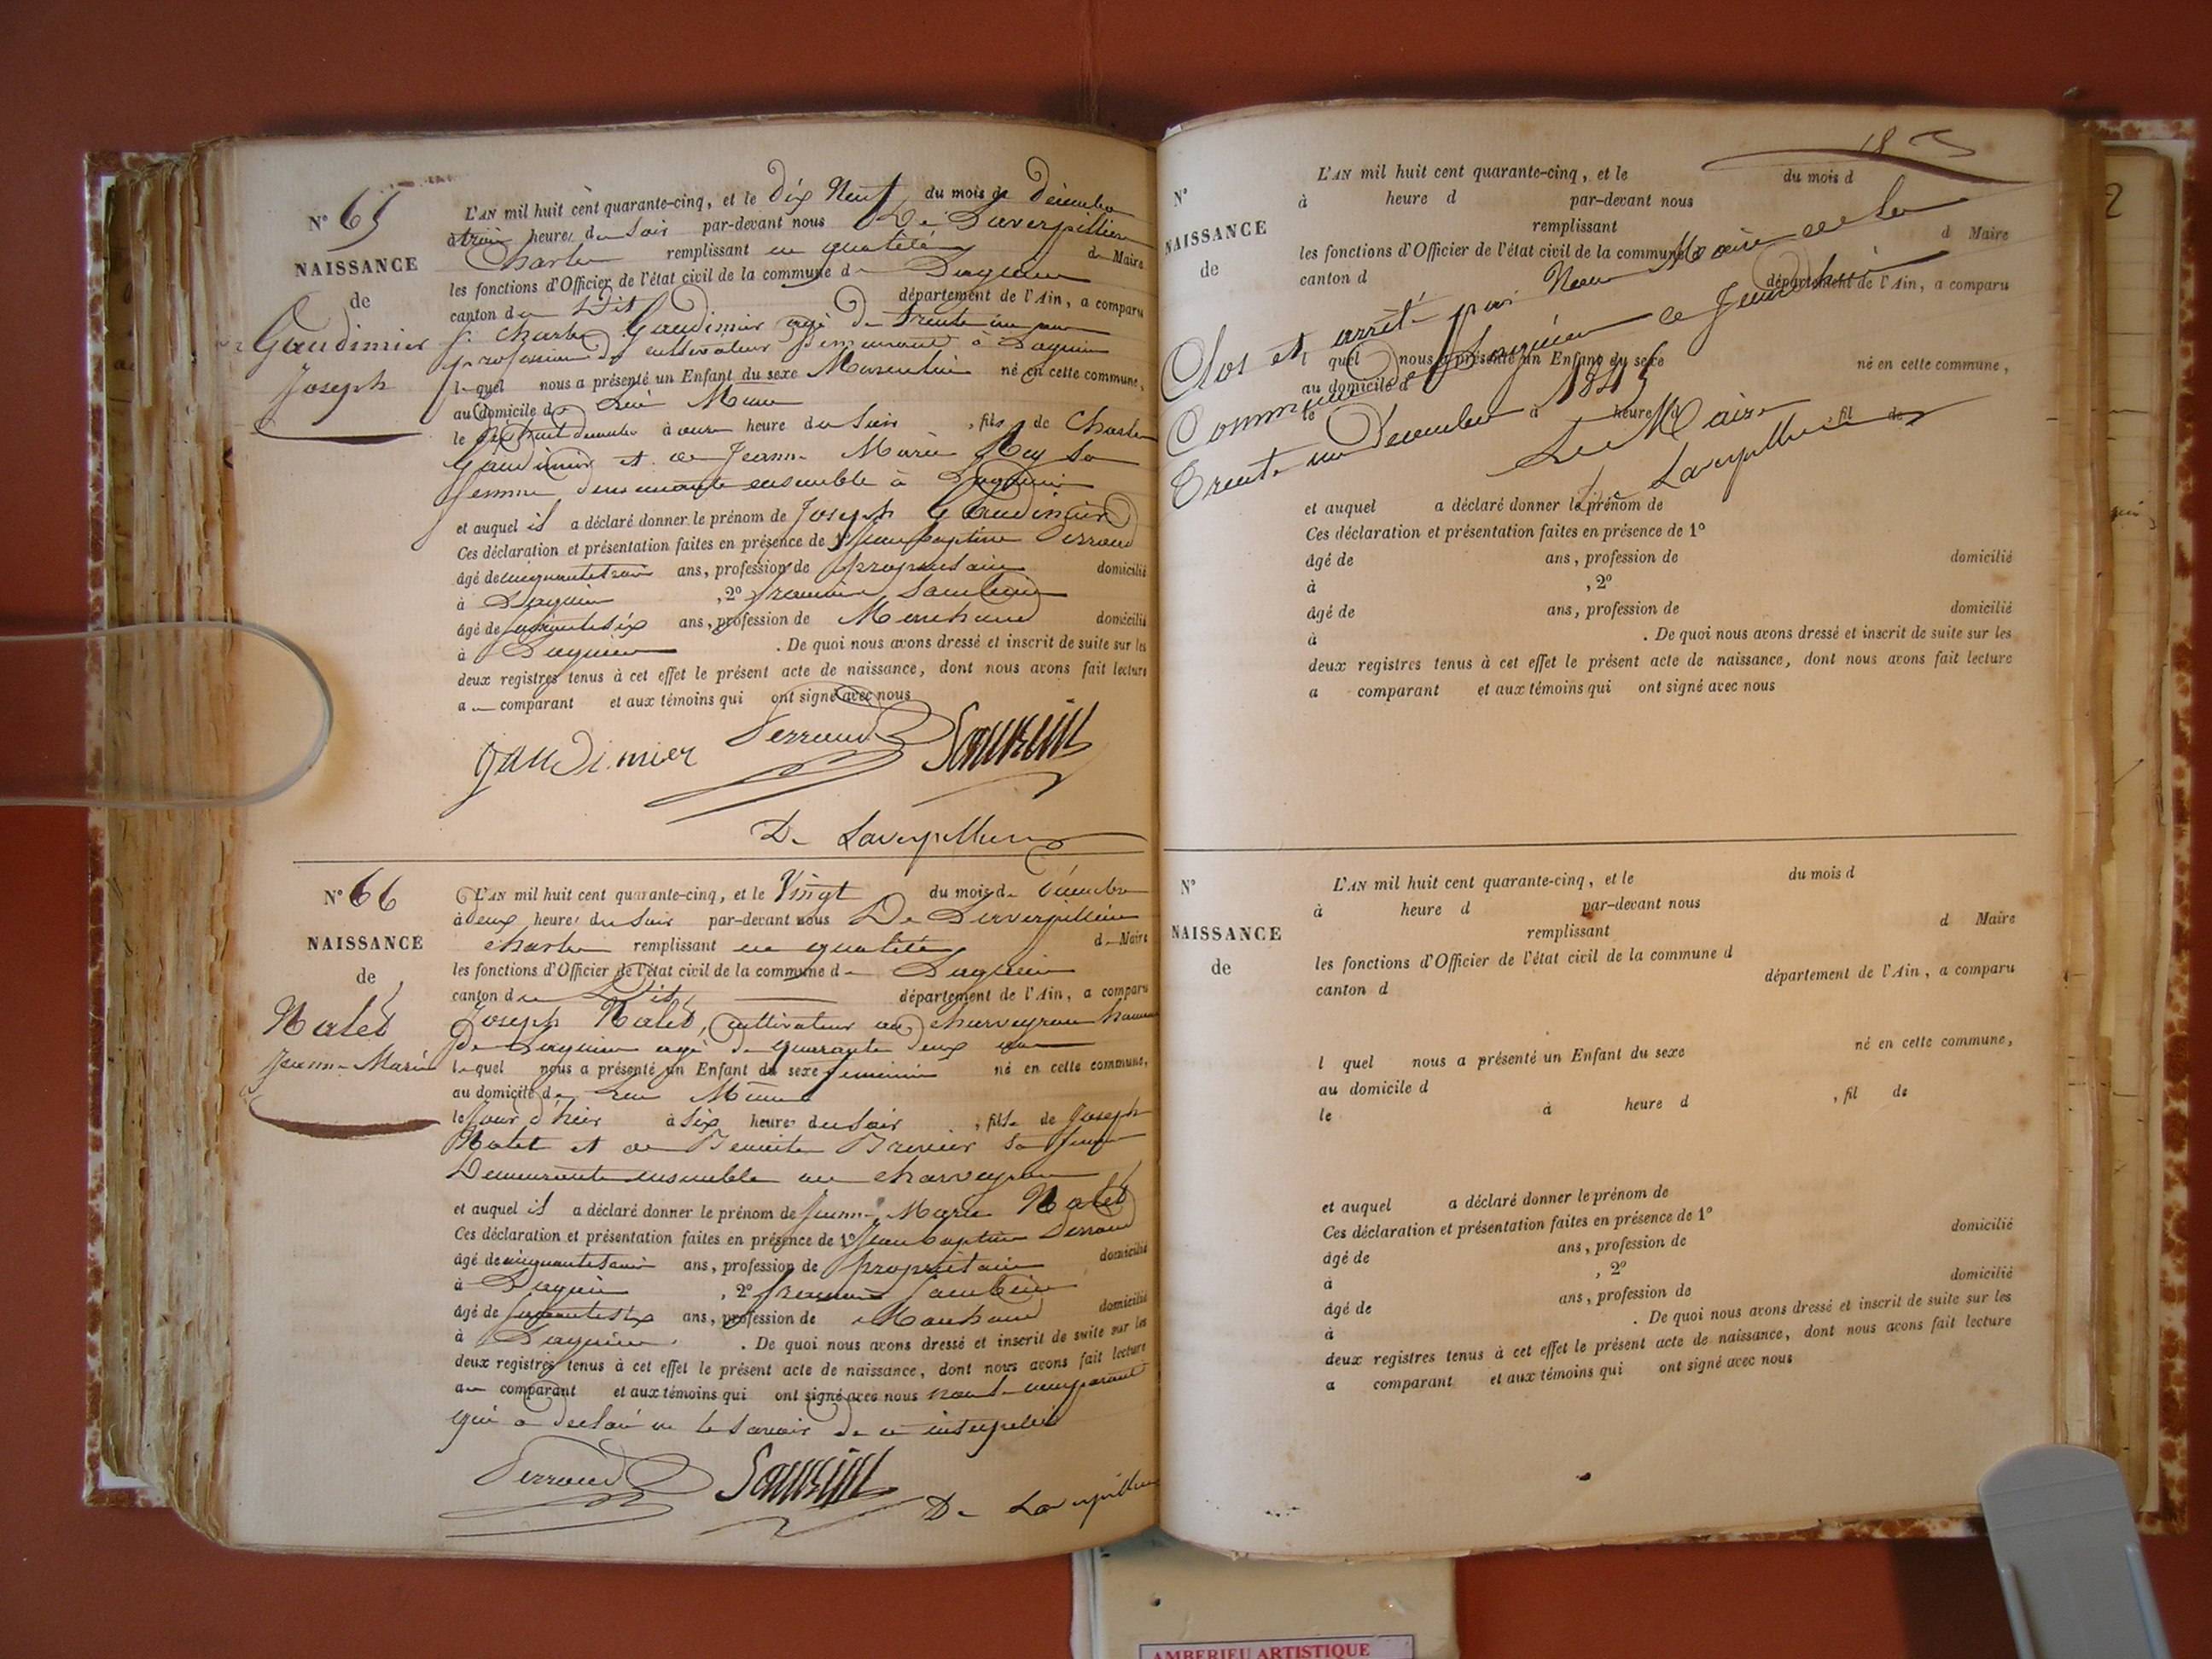 N° 65
NAISSANCE
de
Gaudimier
Joseph
L'AN mil huit cent quarante-cinq, et le dix Neuf du mois de décembre
à trois heures du Soir par-devant nous De Laverpillière
Charles remplissant en qualité de Maire
les fonctions d'Officier de l'état civil de la commune de Lagnieu
canton du Dit département de l'Ain, a comparu
Sr Charles Gaudimier agé de trente un ans
profession de cultivateur demeurant à Lagnieu
lequel nous a présenté un Enfant du sexe Masculin né en cette commune,
au domicile de
le dix huit décembre à onze heure du Soir , fils de Charles
Gaudimier et de Jeanne Marie Rey Sa
femme demeurants ensemble à Lagnieu
et auquel il a déclaré donner le prénom de Joseph Gaudimier
Ces déclaration et présentation faites en présence de 1° Jean Baptiste Perraud
âgé de cinquante trois ans, profession de propriétaire domicilié
à Lagnieu , 2°
âgé de ans, profession de Marchand domicilié
à Lagnieu . De quoi nous avons dressé et inscrit de suite sur les
deux registres tenus à cet effet le présent acte de naissance, dont nous avons fait lecture
au comparant et aux témoins qui ont signé avec nous
gaudimier Perraud
De Laverpilliere
N° 66
NAISSANCE
de
Nalet
Jeanne-Marie
L'AN mil huit cent quarante-cinq, et le Vingt du mois de décembre
à deux heures du Soir par-devant nous De Laverpillière
Charles remplissant en qualité de Maire
les fonctions d'Officier de l'état civil de la commune de Lagnieu
canton du Dit département de l'Ain, a comparu
Joseph Nalet, cultivateur au charveyron hameau
de Lagnieu agé de quarante deux ans
lequel nous a présenté un Enfant du sexe feminin né en cette commune,
au domicile de
le Jour d'hier à Six heures du Soir , fille de Joseph
Nalet et de Benoite Sa femme
Demeurants ensemble au charveyron
et auquel il a déclaré donner le prénom de Jeanne-Marie Nalet
Ces déclaration et présentation faites en présence de 1° Jean Baptiste Perraud
âgé de cinquante trois ans, profession de propriétaire domicilié
à Lagnieu , 2°
âgé de ans, profession de Marchand domicilié
à Lagnieu . De quoi nous avons dressé et inscrit de suite sur les
deux registres tenus à cet effet le présent acte de naissance, dont nous avons fait lecture
au comparant et aux témoins qui ont signé avec nous non le comparant
qui a déclaré ne le Savoir de ce interpellé
Perraud De Laverpilliere
N°
NAISSANCE
de
L'AN mil huit cent quarante-cinq, et le du mois d
à heure d par-devant nous
remplissant d Maire
les fonctions d'Officier de l'état civil de la commune d
canton d département de l'Ain, a comparu
Clos et arrêté par Nous Maire de la
Commune de Lagnieu ce Jourd'hui
Trente un décembre 1845
Le Maire
De Laverpilliere
l quel nous a présenté un Enfant du sexe né en cette commune,
au domicile d
le à heure d , fil de
et auquel a déclaré donner le prénom de
Ces déclaration et présentation faites en présence de 1°
âgé de ans, profession de domicilié
à , 2°
âgé de ans, profession de domicilié
à . De quoi nous avons dressé et inscrit de suite sur les
deux registres tenus à cet effet le présent acte de naissance, dont nous avons fait lecture
a comparant et aux témoins qui ont signé avec nous
N°
NAISSANCE
de
L'AN mil huit cent quarante-cinq, et le du mois d
à heure d par-devant nous
remplissant d Maire
les fonctions d'Officier de l'état civil de la commune d
canton d département de l'Ain, a comparu
l quel nous a présenté un Enfant du sexe né en cette commune,
au domicile d
le à heure d , fil de
et auquel a déclaré donner le prénom de
Ces déclaration et présentation faites en présence de 1°
âgé de ans, profession de domicilié
à , 2°
âgé de ans, profession de domicilié
à . De quoi nous avons dressé et inscrit de suite sur les
deux registres tenus à cet effet le présent acte de naissance, dont nous avons fait lecture
a comparant et aux témoins qui ont signé avec nous
AMBERIEU ARTISTIQUE